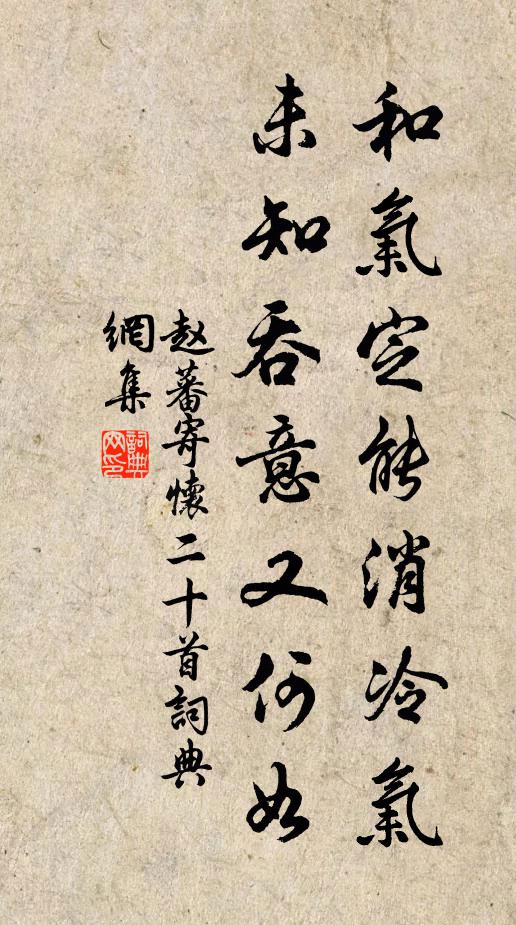 和氣定能消冷氣
未知吞意又何如
赵蕃寄懷二十首詞典
網集
詞典網印